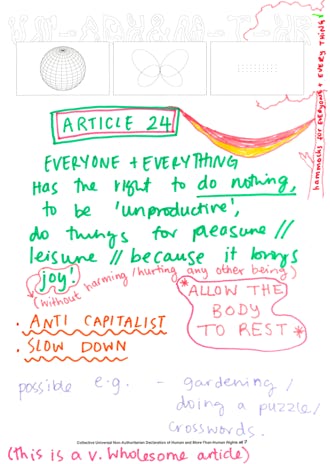 hammocks for everyone + EVERY THING
ARTICLE 24
EVERYONE + EVERYTHING
Has the right to do nothing,
to be 'unproductive',
do things for pleasure //
leisure // because it brings
joy!
(without harming/hurting any other being)
*ALLOW THE
BODY
TO REST*
• ANTI CAPITALIST
• SLOW DOWN
possible e.g. - gardening/
doing a puzzle/
crosswords.
Collective Universal Non-Authoritarian Declaration of Human and More-Than-Human Rights
(this is a v. wholesome article)